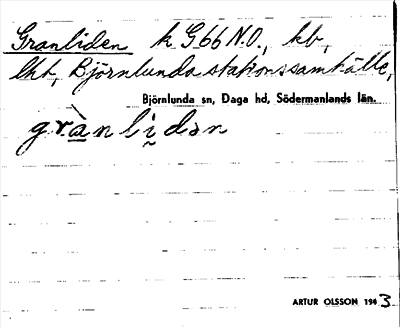 Granliden k G66 N.O., kb,
lht, Björnlunda stationssamhälle,
Björnlunda sn, Daga hd, Södermanlands län.
grànlidən
ARTUR OLSSON 1943